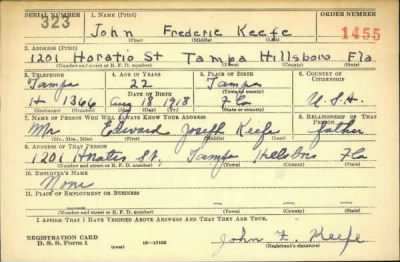 SERIAL NUMBER 1. NAME (Print) ORDER NUMBER
323 John Frederic Keefe 1455
(First) (Middle) (Last)
2. ADDRESS (Print)
1201 Horatio St Tampa Hillsboro Fla.
(Number and street or R. F. D. number) (Town) (County) (State)
3. TELEPHONE 4. AGE IN YEARS 5. PLACE OF BIRTH 6. COUNTRY OF CITIZENSHIP
Tampa 22 Tampa
DATE OF BIRTH (Town or county)
H 1366 Aug 18 1918 Fla U.S.A.
(Exchange) (Number) (Mo.) (Day) (Yr.) (State or country)
7. NAME OF PERSON WHO WILL ALWAYS KNOW YOUR ADDRESS 8. RELATIONSHIP OF THAT PERSON
Mr. Edward Joseph Keefe father
(Mr., Mrs., Miss) (First) (Middle) (Last)
9. ADDRESS OF THAT PERSON
1201 Horatio St, Tampa Hillsboro Fla
(Number and street or R. F. D. number) (Town) (County) (State)
10. EMPLOYER'S NAME
None
11. PLACE OF EMPLOYMENT OR BUSINESS
(Number and street or R. F. D. number) (Town) (County) (State)
I AFFIRM THAT I HAVE VERIFIED ABOVE ANSWERS AND THAT THEY ARE TRUE.
REGISTRATION CARD
D. S. S. Form 1 (over) 16-17105 John F. Keefe
(Registrant's signature)